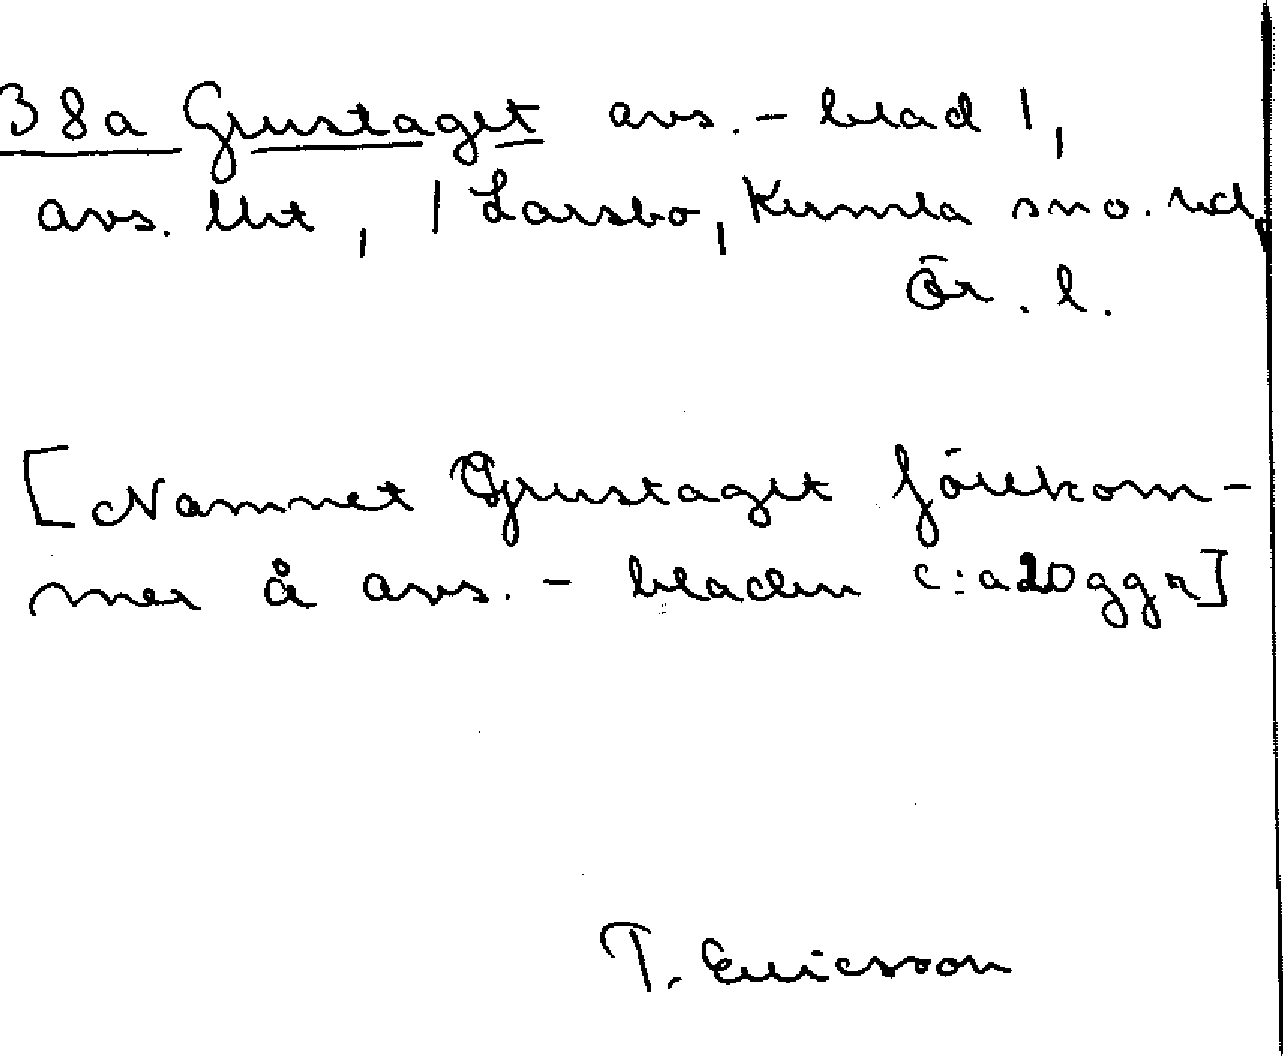 38a Grustaget avs. - blad 1,
avs. utit, 1 Larsbo, Kumla sno. hd,
Ör. l.
[Namnet Grustaget förekom-
mer å avs. - bladen c:a 20 ggr]
T. Ericsson